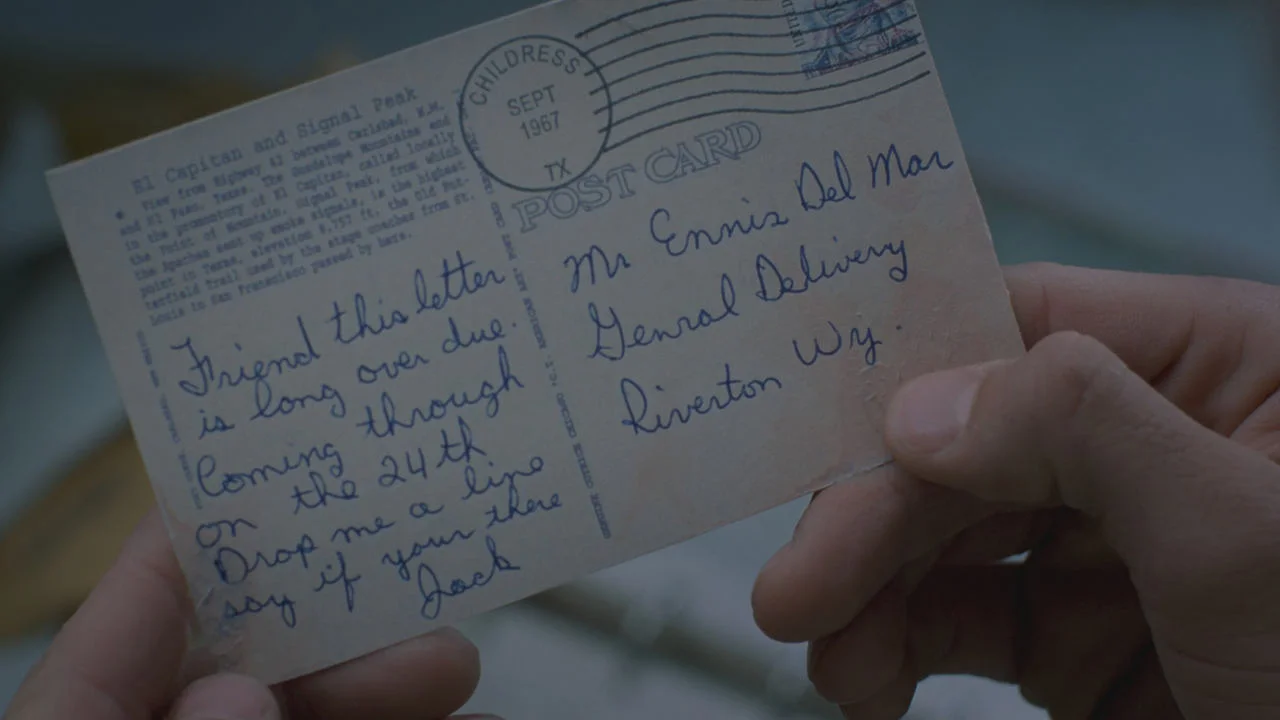 El Capitan and Signal Peak
View from Highway 62 between Carlsbad, N.M.
and El Paso, Texas. The Guadelupe Mountains and
in the promontory of El Capitan, called locally
the Point of Mountain. Signal Peak, from which
the Apaches sent up smoke signals, is the highest
point in Texas, elevation 8,757 ft. the Old But-
terfield Trail used by the stage coaches from St.
Louis to San Francisco passed by here.
CHILDRESS
SEPT
1967
TX
UNITED
POST CARD
Friend this letter
is long over due.
Coming through
on the 24th
Drop me a line
say if your there
Jack
Mr Ennis Del Mar
Genral Delivery
Riverton Wy.